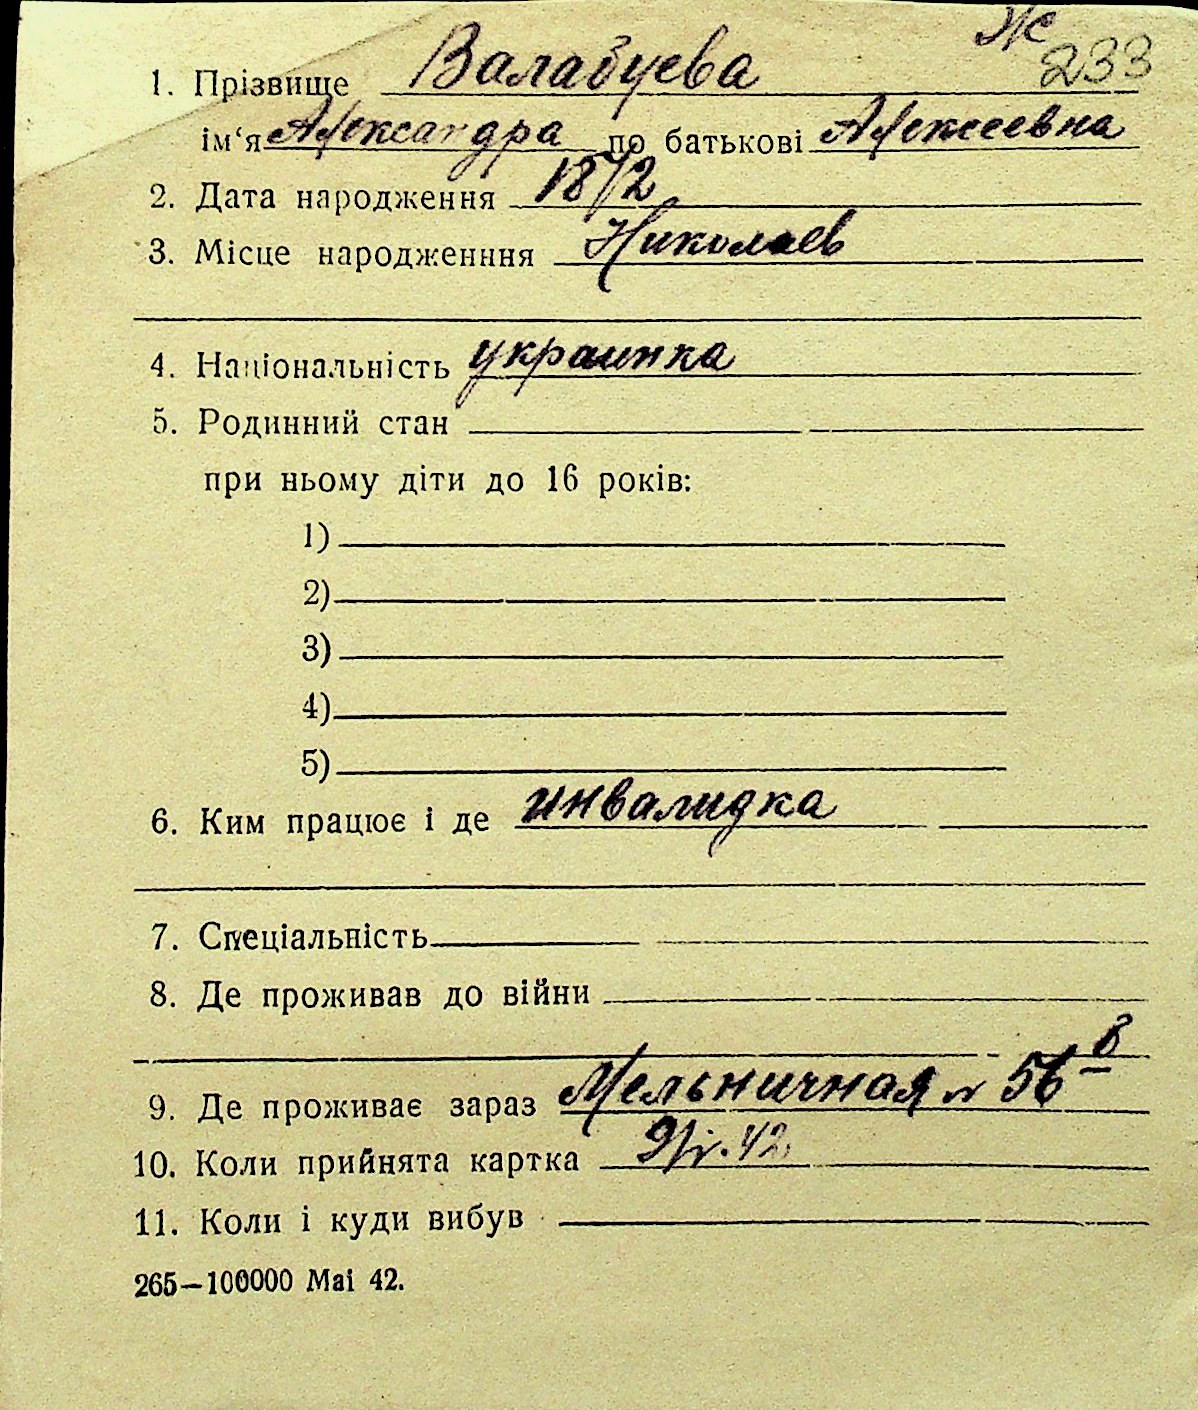 Ж
233
1. Прізвище Валабуева
ім‘я Александра по батькові Алексеевна
2. Дата народження 1872
3. Місце народженння Николаев
4. Національність украинка
5. Родинний стан
при ньому діти до 16 років:
1)
2)
3)
4)
5)
6. Ким працює і де инвалидка
7. Спеціальність
8. Де проживав до війни
9. Де проживає зараз Мельничная № 56 8
10. Коли прийнята картка 42
11. Коли і куди вибув
265—100000 Mai 42.